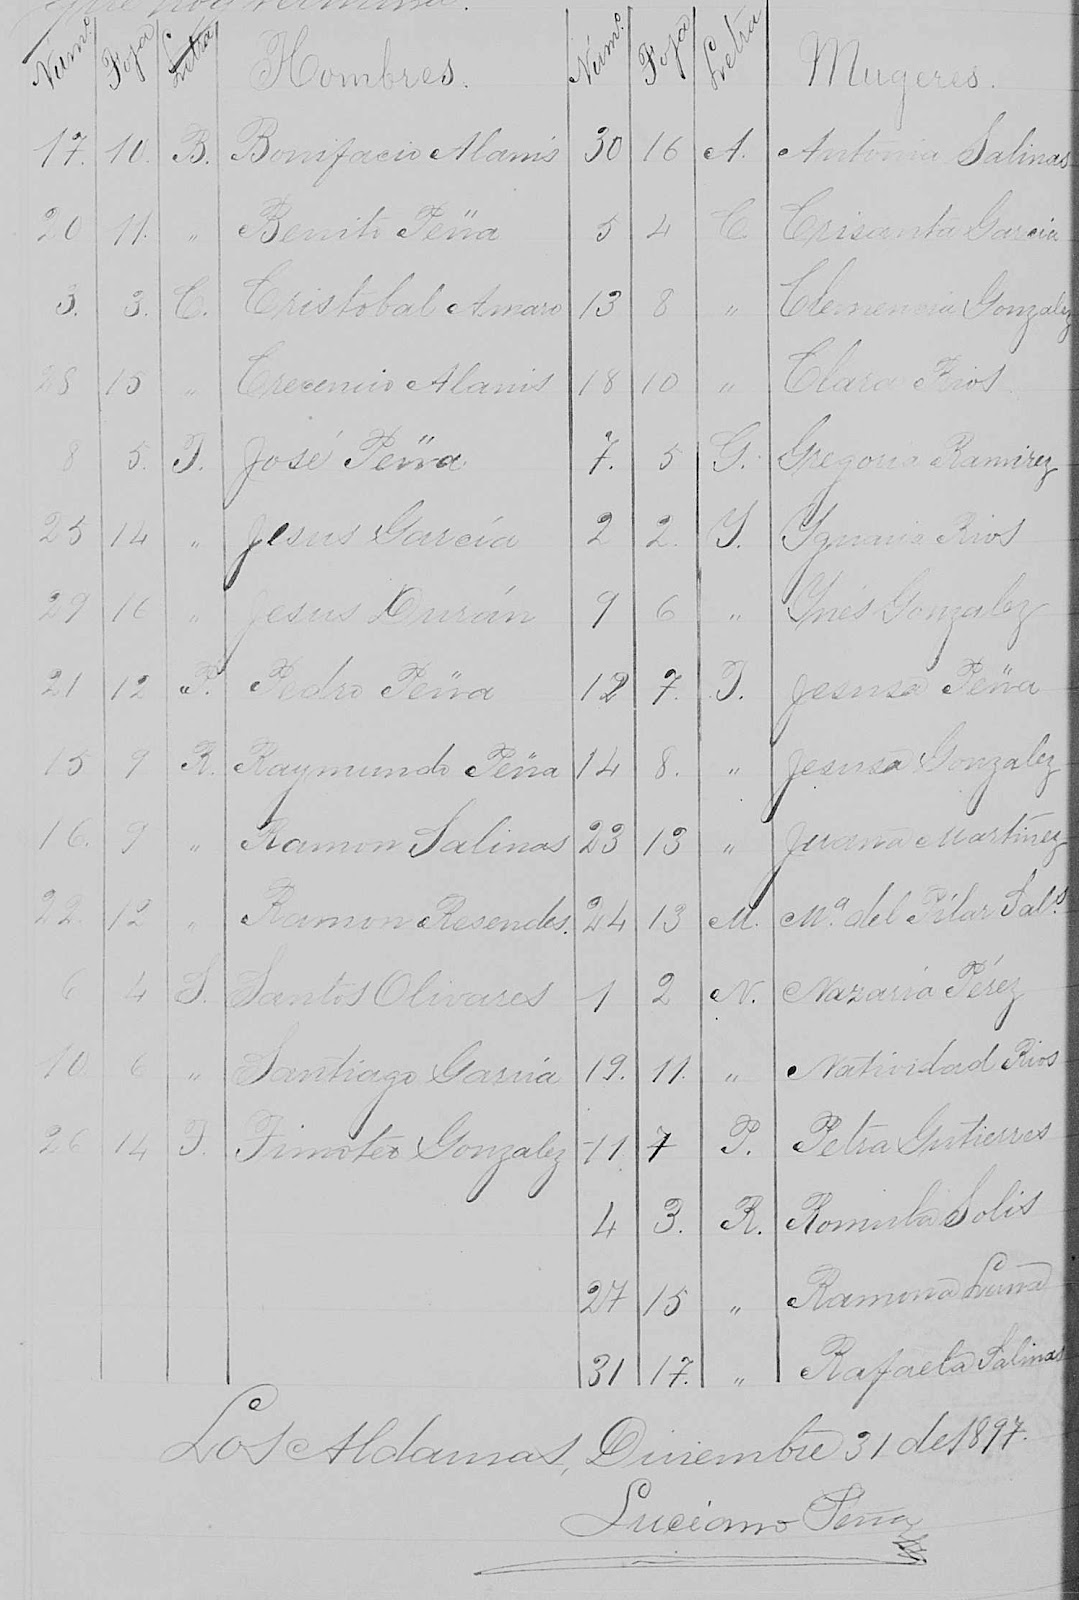 que hoy termina.
Núm.º Foja Letra Hombres. Núm.º Foja Letra Mugeres.
17. 10. B. Bonifacio Alanis 30 16 A. Antonia Salinas
20 11. „ Benito Peña 5 4 C. Crisanta Garcia
3. 3. C. Cristobal Amaro 13 8 „ Clemencia Gonzalez
28 15 „ Crecencio Alanis 18 10 „ Clara Rios
8 5. J. José Peña 7. 5 G. Gregoria Ramirez
25 14 „ Jesus García 2 2. Y. Ygnacia Rios
29 16 „ Jesus Durán 9 6 „ Ynés Gonzalez
21 12 P. Pedro Peña 12 7. J. Jesusa Peña
15 9 R. Raymundo Peña 14 8. „ Jesusa Gonzalez
16. 9 „ Ramon Salinas 23 13 „ Juana Martinez
22. 12 „ Ramon Resendes. 24 13 M. Mª. del Pilar Sal.s
6 4 S. Santos Olivares 1 2 N. Nazaria Pérez
10 6 „ Santiago Garcia 19. 11. „ Natividad Rios
26 14 T. Timoteo Gonzalez 11 7 P. Petra Gutierres
4 3. R. Romula Solis
27 15 „ Ramona Luna
31 17. „ Rafaela Salinas
Los Aldamas, Diciembre 31 de 1897.
Luciano Peña